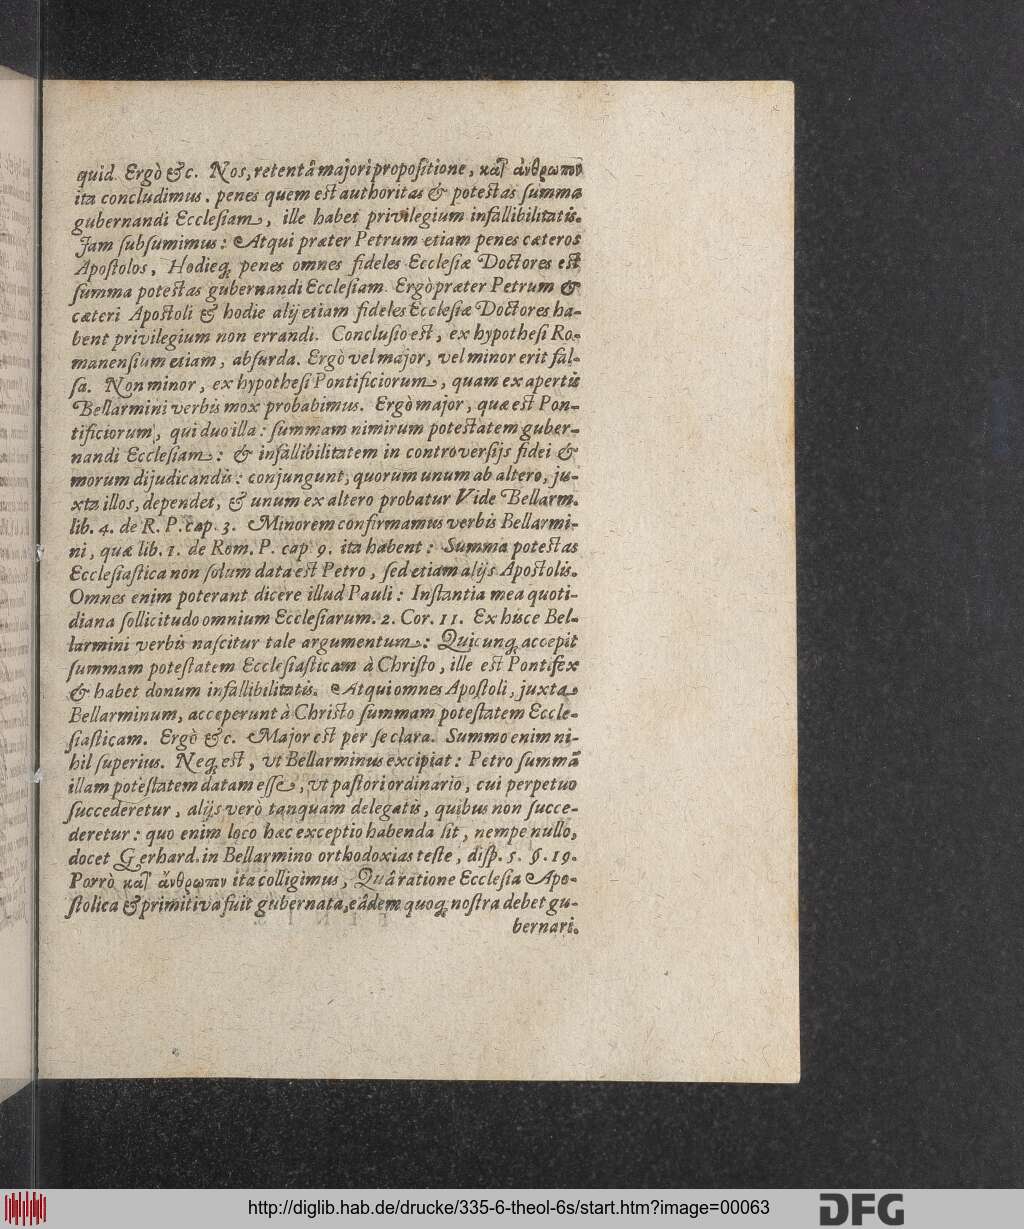 quid. Ergò &c. Nos, retentâ majori propoſitione, κατ᾽ ἄνθρωπον
ita concludimus. penes quem eſt authoritas & poteſtas ſumma
gubernandi Eccleſiam, ille habet privilegium infallibilitatis.
Jam ſubſumimus: Atqui præter Petrum etiam penes cæteros
Apoſtolos, Hodieq; penes omnes fideles Eccleſiæ Doctores eſt
ſumma poteſtas gubernandi Eccleſiam. Ergò præter Petrum &
cæteri Apoſtoli & hodie alij etiam fideles Eccleſiæ Doctores ha-
bent privilegium non errandi. Concluſio eſt, ex hypotheſi Ro-
manenſium etiam, abſurda. Ergò vel major, vel minor erit fal-
ſa. Non minor, ex hypotheſi Pontificiorum, quam ex apertis
Bellarmini verbis mox probabimus. Ergò major, quæ eſt Pon-
tificiorum, qui duo illa: ſummam nimirum poteſtatem guber-
nandi Eccleſiam: & infallibilitatem in controverſijs fidei &
morum dijudicandis: conjungunt, quorum unum ab altero, ju-
xta illos, dependet, & unum ex altero probatur Vide Bellarm.
lib. 4. de R. P. cap. 3. Minorem confirmamus verbis Bellarmi-
ni, quæ lib. 1. de Rom. P. cap 9. ita habent: Summa poteſtas
Eccleſiaſtica non ſolum data eſt Petro, ſed etiam alijs Apoſtolis.
Omnes enim poterant dicere illud Pauli: Inſtantia mea quoti-
diana ſollicitudo omnium Eccleſiarum. 2. Cor. 11. Ex hisce Bel-
larmini verbis naſcitur tale argumentum: Quicunq; accepit
ſummam poteſtatem Eccleſiaſticam à Chriſto, ille est Pontifex
& habet donum infallibilitatis. Atqui omnes Apoſtoli, juxta
Bellarminum, acceperunt à Chriſto ſummam poteſtatem Eccle-
ſiaſticam. Ergò &c. Major eſt per ſe clara. Summo enim ni-
hil ſuperius. Neq; eſt, ut Bellarminus excipiat: Petro ſummã
illam poteſtatem datam eſſe, ut paſtori ordinario, cui perpetuo
ſuccederetur, alijs verò tanquam delegatis, quibus non ſucce-
deretur: quo enim loco hæc exceptio habenda ſit, nempe nullo,
docet Gerhard. in Bellarmino orthodoxias teſte, diſp. 5. §. 19.
Porrò κατ᾽ ἄνθρωπον ita colligimus, Quâ ratione Eccleſia Apo-
ſtolica & primitiva fuit gubernata, eâdem quoq; noſtra debet gu-
bernari.
http://diglib.hab.de/drucke/335-6-theol-6s/start.htm?image=00063
DFG